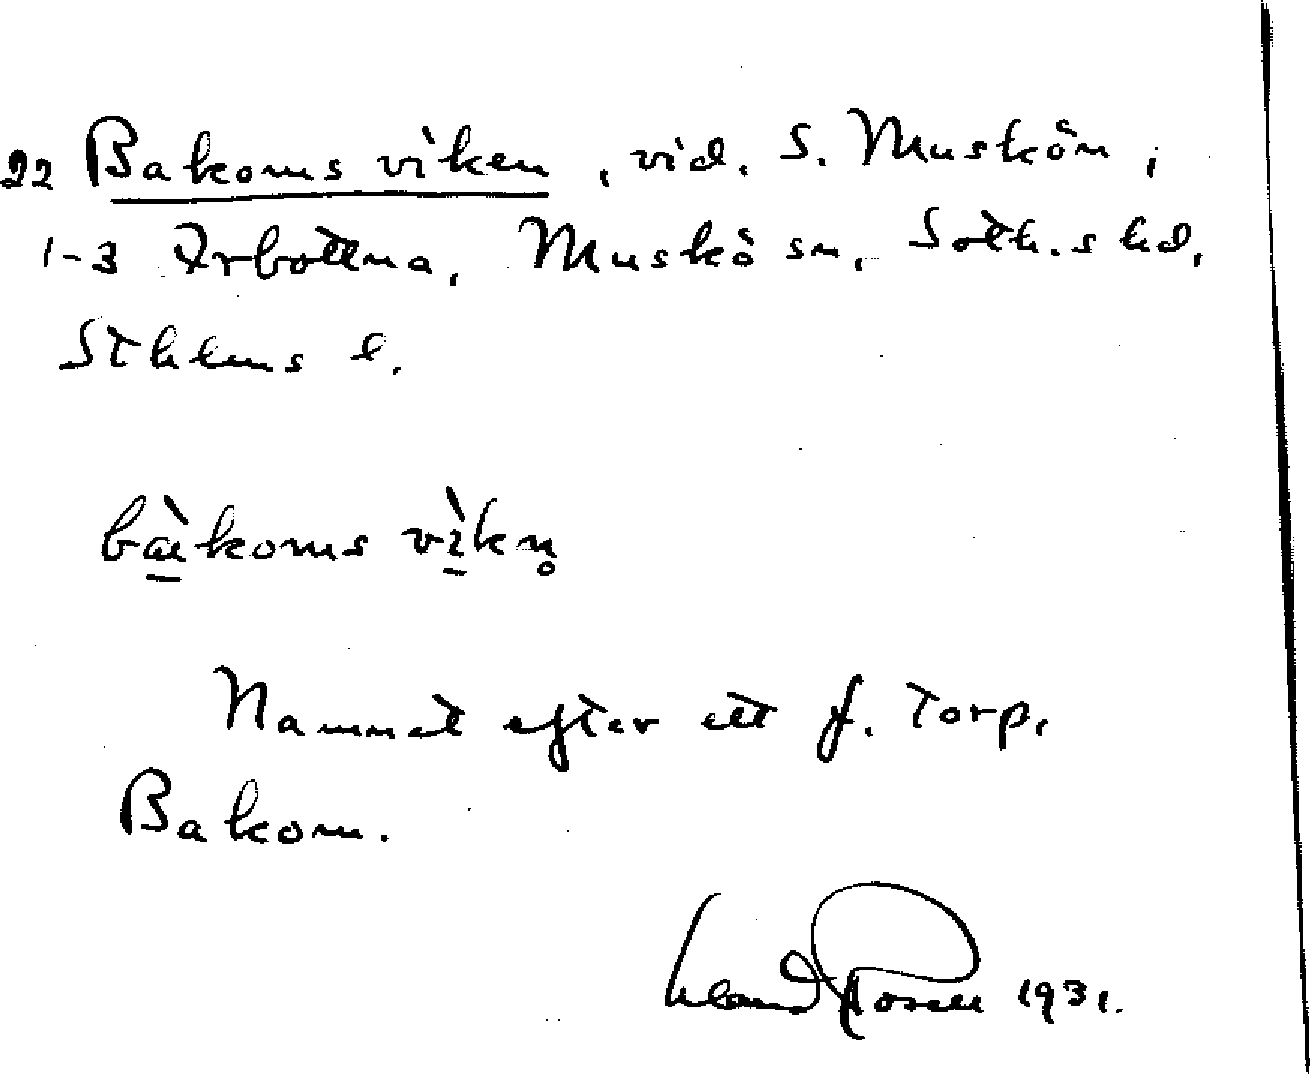 22 Bakoms viken, vid. S. Muskön,
1-3 Arbottna, Muskö sn, Soth.s hd,
Sthlms l.
bàkoms vìkn̥
Namnet efter ett f. torp,
Bakom.
Posse 1931.